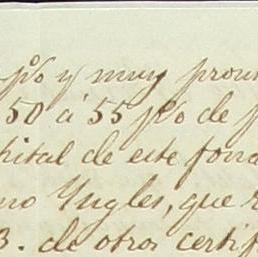 p% y muy pron
50 á 55 p% de p
hital de este fond
no Yngles, que r
3. de otros certif